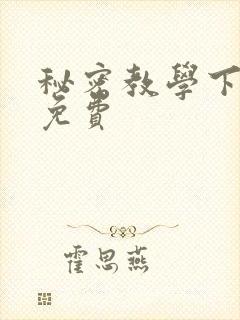 秘密教學下
免費
霍思燕